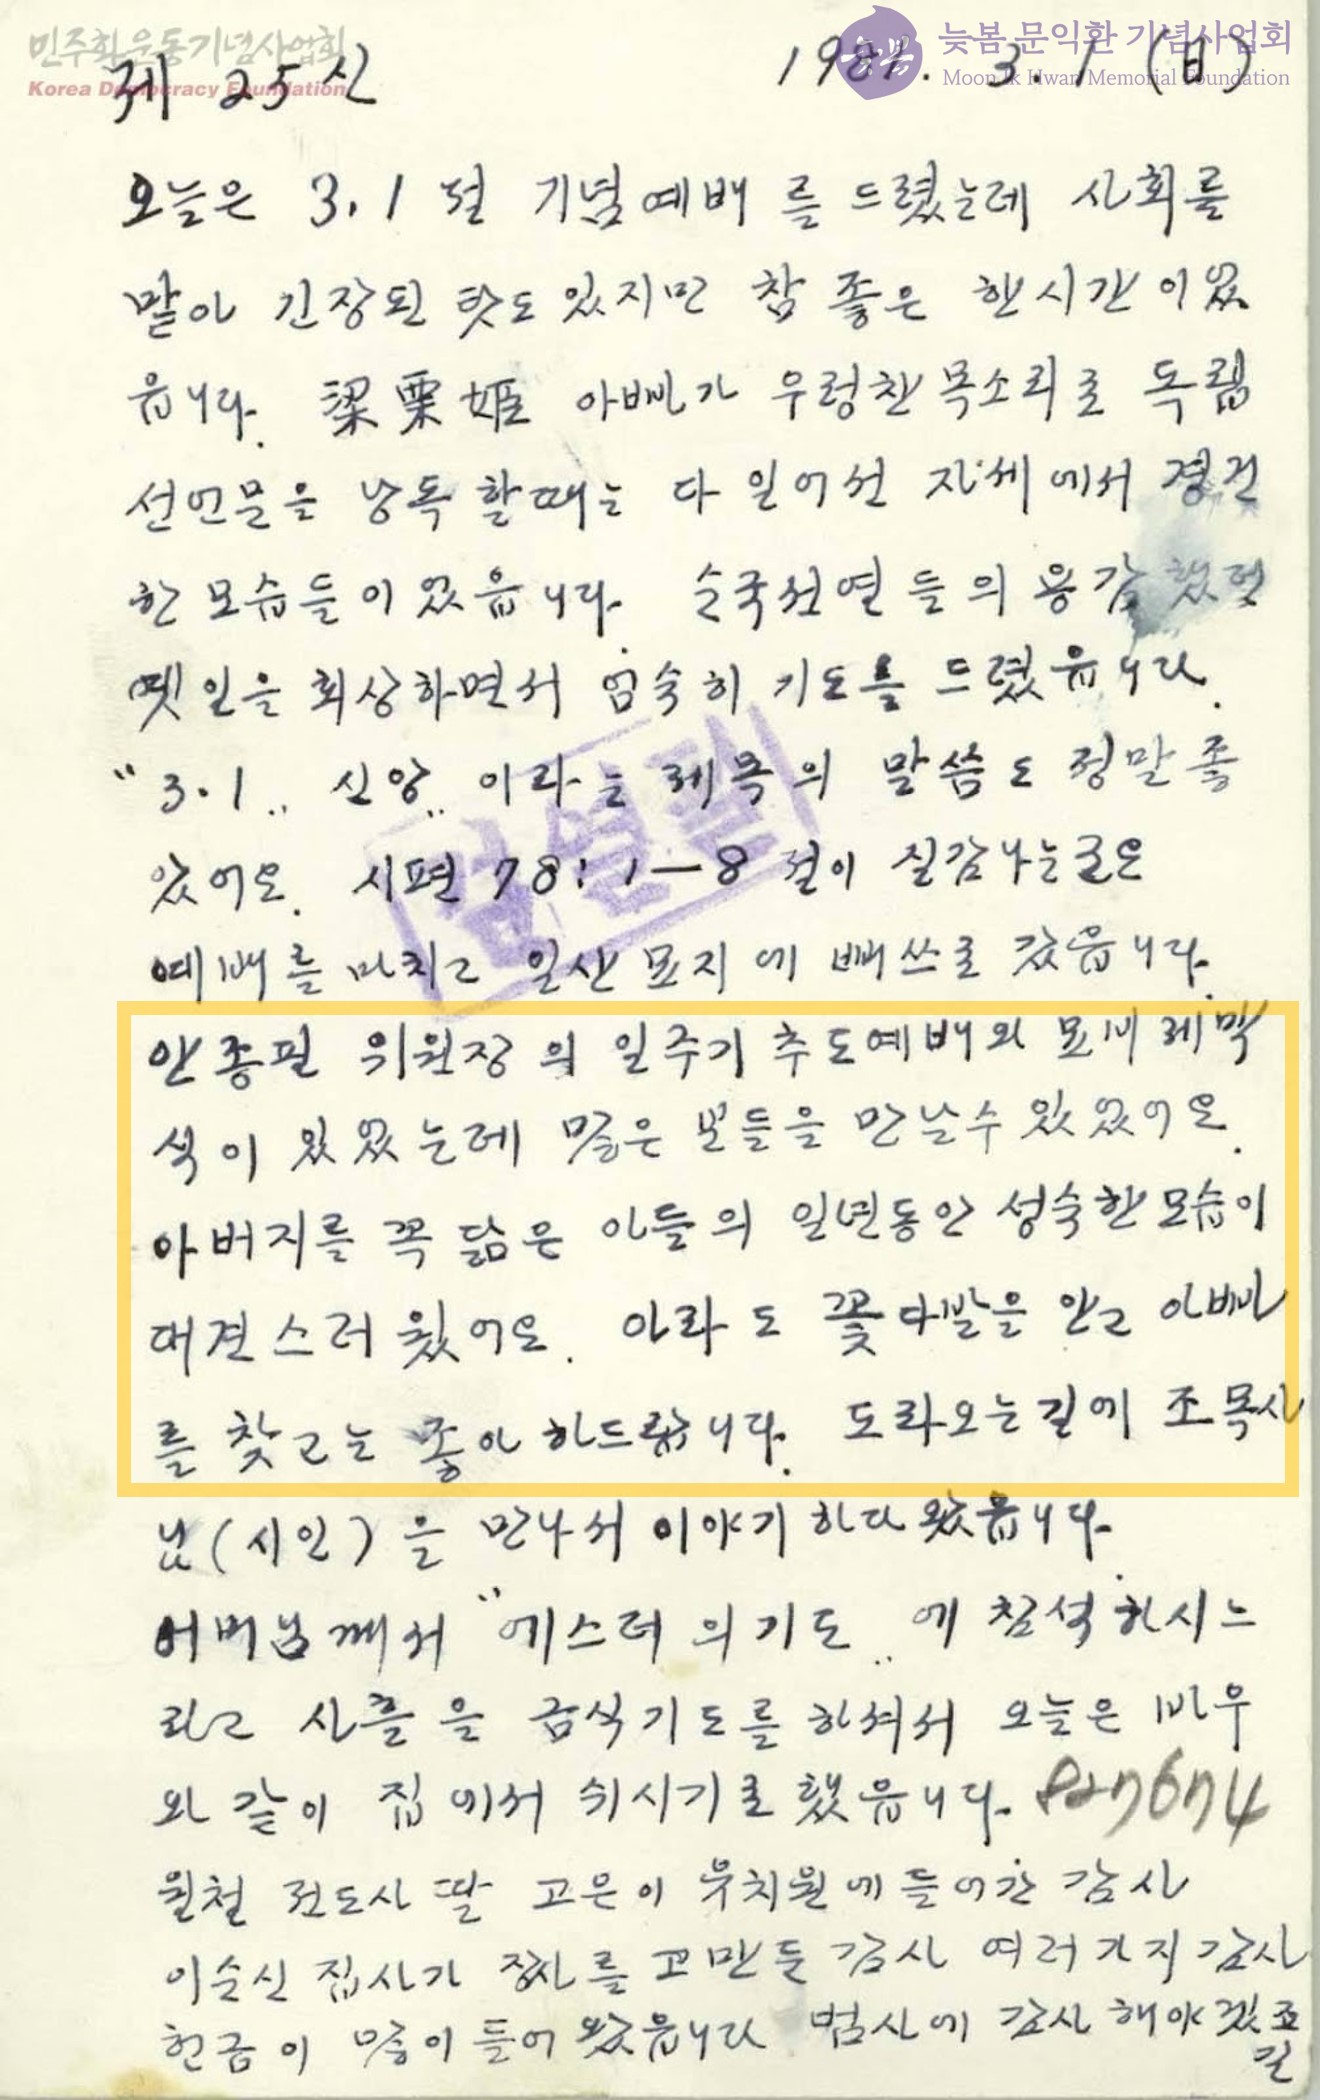 민주화운동기념사업회
Korea Democracy Foundation
늦봄 문익환 기념사업회
Moon Ik Hwan Memorial Foundation
제 25신 1981. 3. 1 (日)
오늘은 3.1 절 기념예배를 드렸는데 사회를
맡아 긴장된 탓도 있지만 참 좋은 한시간이었
읍니다. 梁栗姬 아빠가 우렁찬 목소리로 독립
선언문을 낭독할때는 다 일어선 자세에서 경건
한 모습들이었읍니다. 순국선열들의 용감했던
옛일을 회상하면서 엄숙히 기도를 드렸읍니다.
“3.1„ 신앙„ 이라는 제목의 말씀도 정말 좋
았어요. 시편 78:1—8 절이 실감나는글은
예배를 마치고 일산묘지에 뻐쓰로 갔읍니다.
안종필 위원장의 일주기 추도예배와 묘비제막
식이 있었는데 많은 분들을 만날수 있었어요.
아버지를 꼭 닮은 아들의 일년동안 성숙한 모습이
대견스러웠어요. 아라도 꽃다발을 안고 아빠
를 찾고는 좋아하드랍니다. 도라오는길에 조목사
님(시인)을 만나서 이야기하다 왔읍니다.
어머님께서 “에스더의기도„ 에 참석하시느
라고 사흘을 금식기도를 하셔서 오늘은 바우
와 같이 집에서 쉬시기로 했읍니다. 827674
원철 전도사 딸 고은이 유치원에 들어간 감사
이순신 집사가 장사를 고만둔 감사 여러가지 감사
헌금이 많이 들어왔읍니다 범사에 감사해야겠죠
길